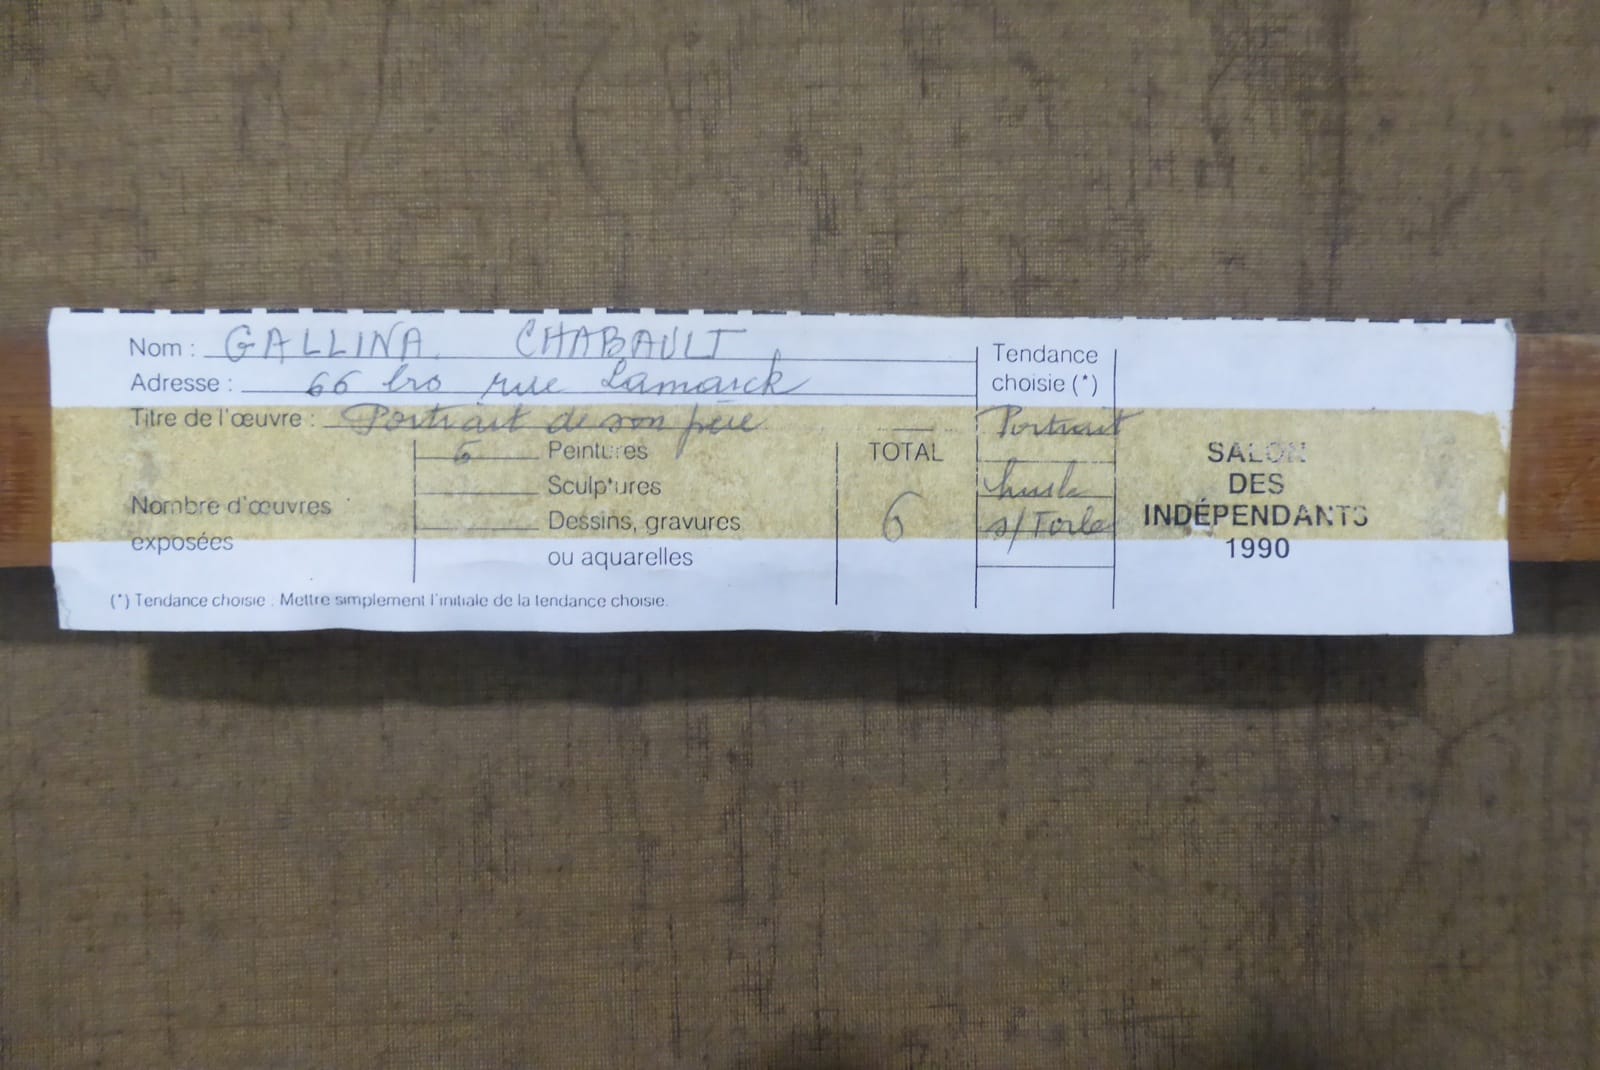 Nom : GALLINA CHABAULT
Adresse : 66 bis rue Lamarck
Titre de l'œuvre : Portrait de son père
Nombre d'œuvres
exposées
6 Peintures
Sculptures
Dessins, gravures
ou aquarelles
TOTAL
6
Tendance
choisie (*)
Portrait
huile
s/Toile
SALON
DES
INDÉPENDANTS
1990
(*) Tendance choisie : Mettre simplement l'initiale de la tendance choisie.